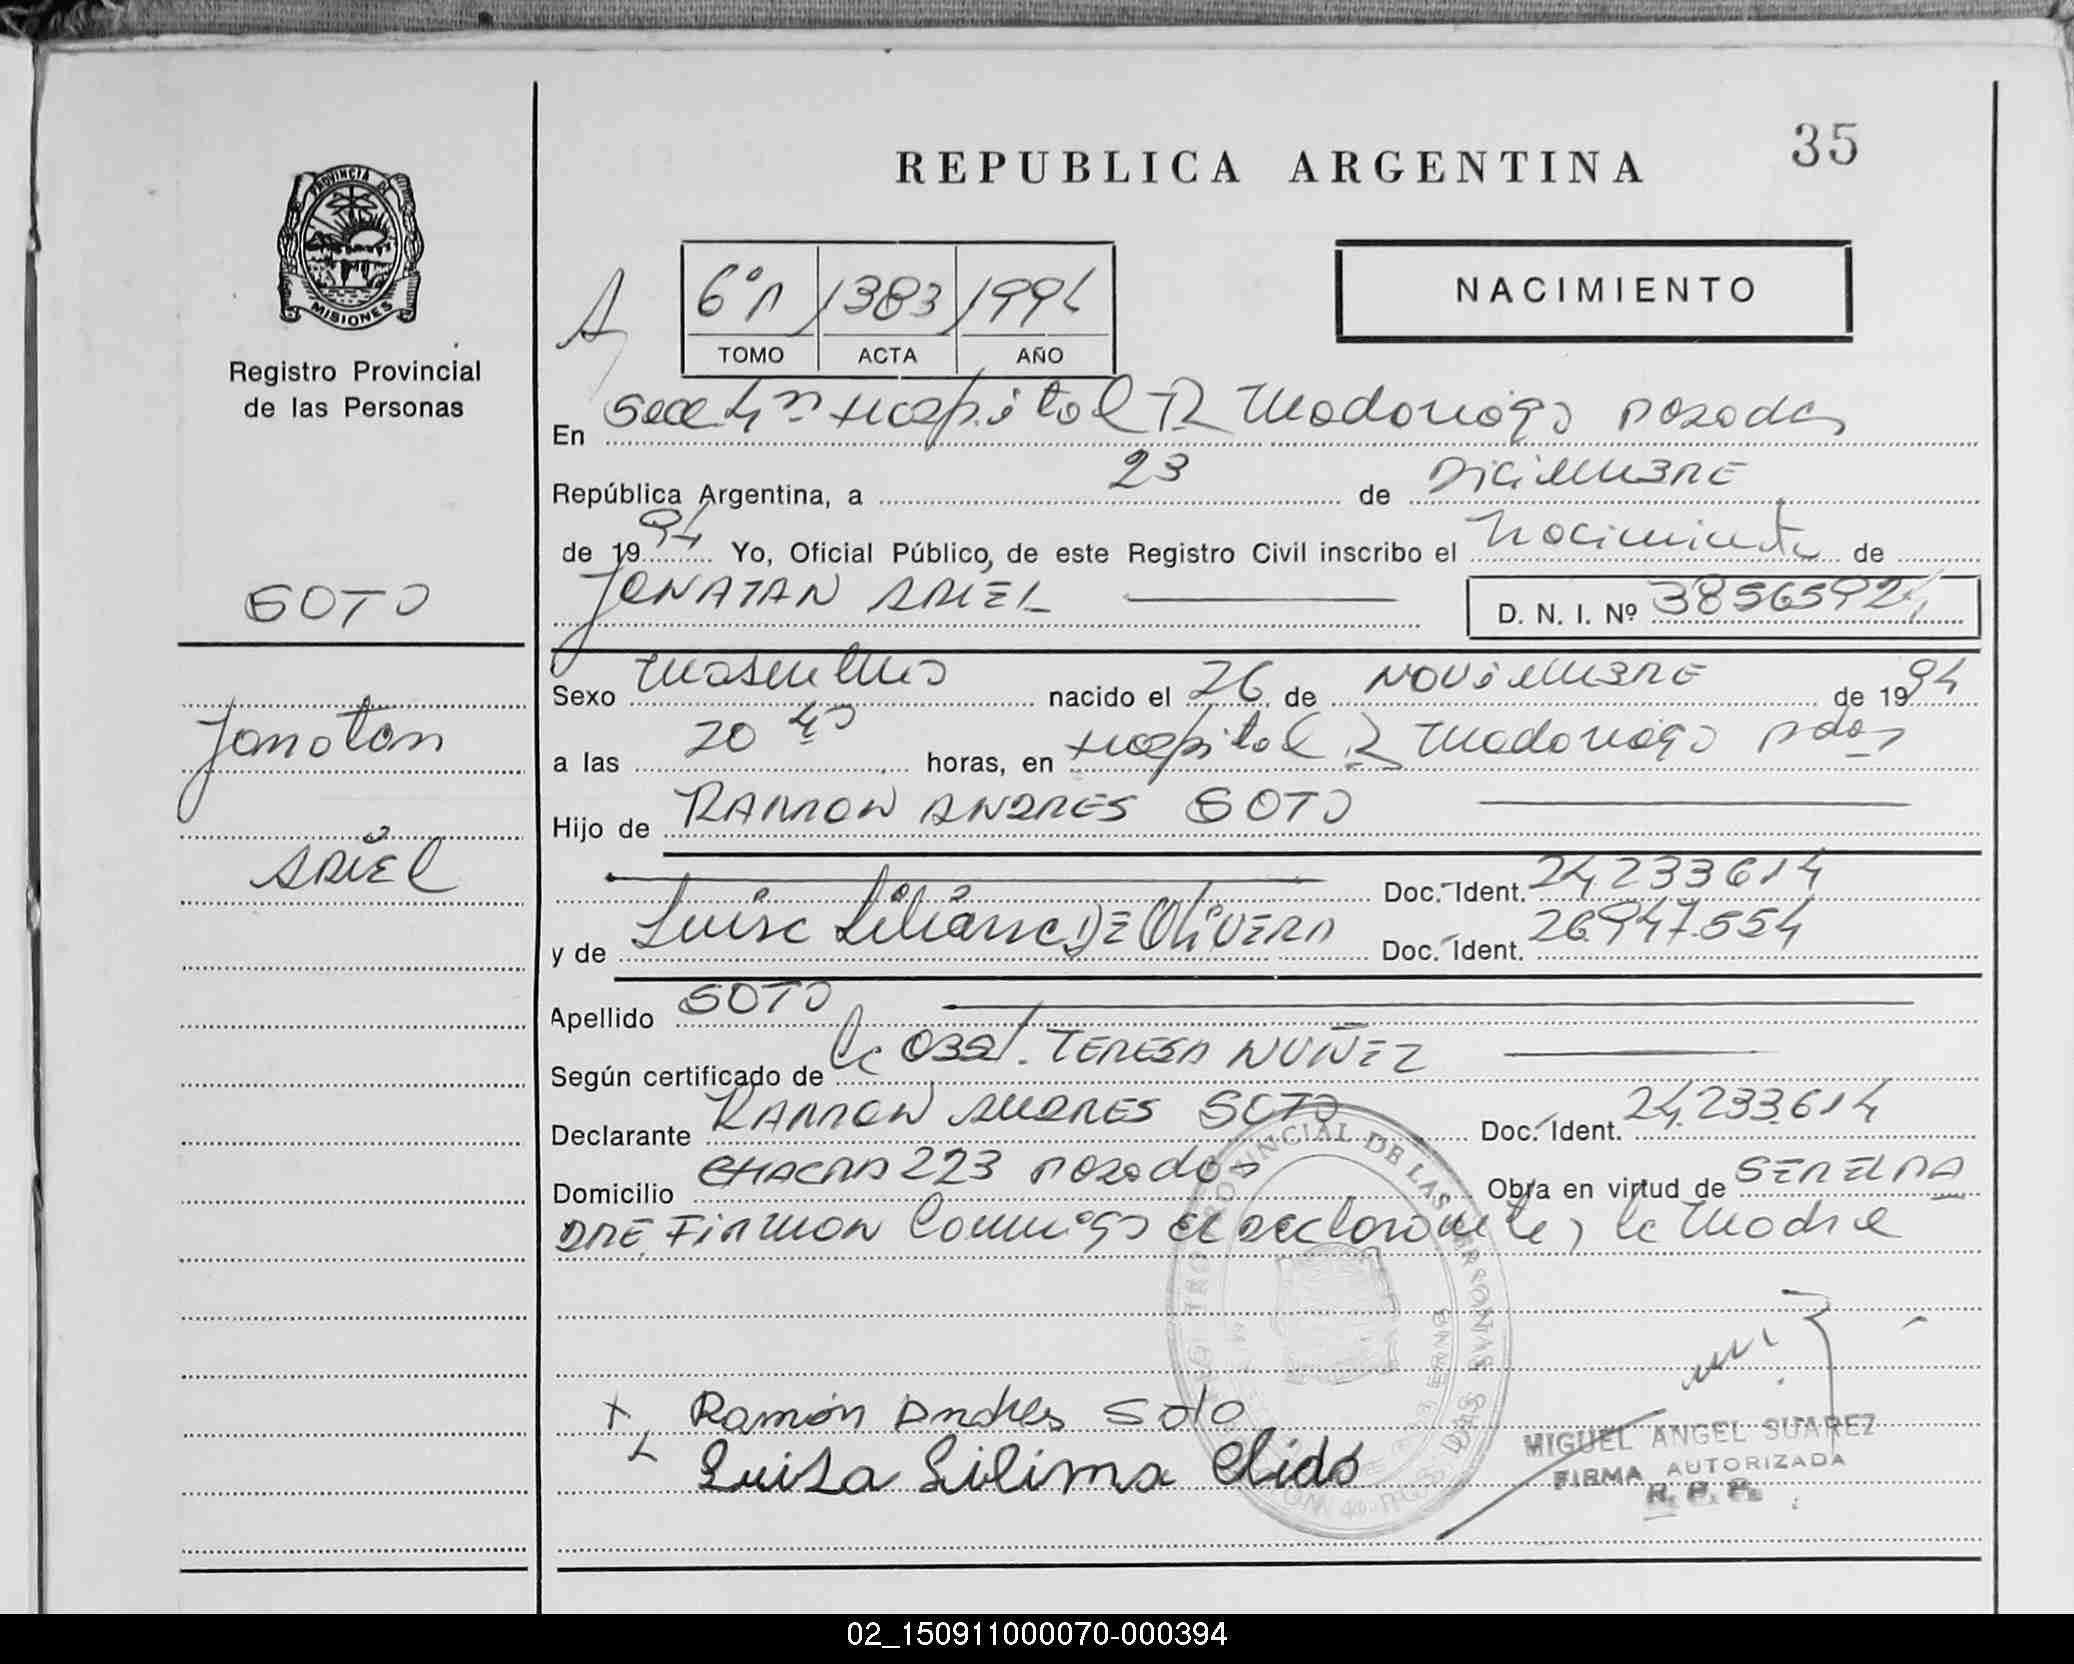 35
REPUBLICA ARGENTINA
PROVINCIA DE
MISIONES
Registro Provincial
de las Personas
NACIMIENTO
A
6º A 1383 1994
TOMO ACTA AÑO
En Secc 4ta Hospital R Madariaga Posadas
República Argentina, a 23 de DICIEMBRE
de 1994 Yo, Oficial Público, de este Registro Civil inscribo el Nacimiento de
JONATAN ARIEL
D. N. I. Nº 38565924
SOTO
Jonatan
ARIEL
Sexo Masculino nacido el 26 de NOVIEMBRE de 1994
a las 20 horas, en Hospital R Madariaga Pdas
Hijo de RAMON ANDRES SOTO
Doc. Ident. 24.233614
y de Luisa Liliana DE OLIVERA Doc. Ident. 26.947.554
Apellido SOTO
Según certificado de la Obst. TERESA NUÑEZ
Declarante RAMON ANDRES SOTO Doc. Ident. 24.233.614
Domicilio CHACRA 223 Posadas Obra en virtud de SER EL PA
DRE. FIRMAN Conmigo el declarante y la Madre
Ramón Andres Soto
Luisa Lilima
MIGUEL ANGEL SUAREZ
FIRMA AUTORIZADA
R. P. P.
02_150911000070-000394